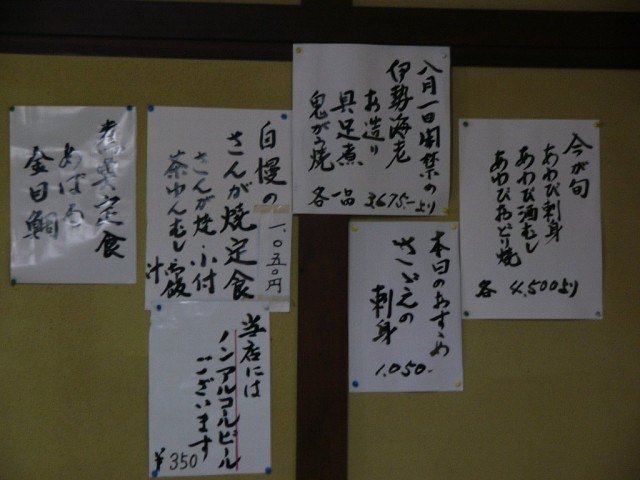 今が旬
あわび刺身
あわび酒むし
あわびおどり焼
各 4,500より
八月一日解禁の
伊勢海老
お造り
具足煮
鬼がら焼
各一品 3,675-より
本日のおすすめ
さざえの
刺身
1,050-
自慢の
さんが焼定食
一、〇五〇円
さんが焼・小付
茶わんむし・ご飯
汁
当店には
ノンアルコールビール
ございます
¥350
煮魚定食
金目鯛